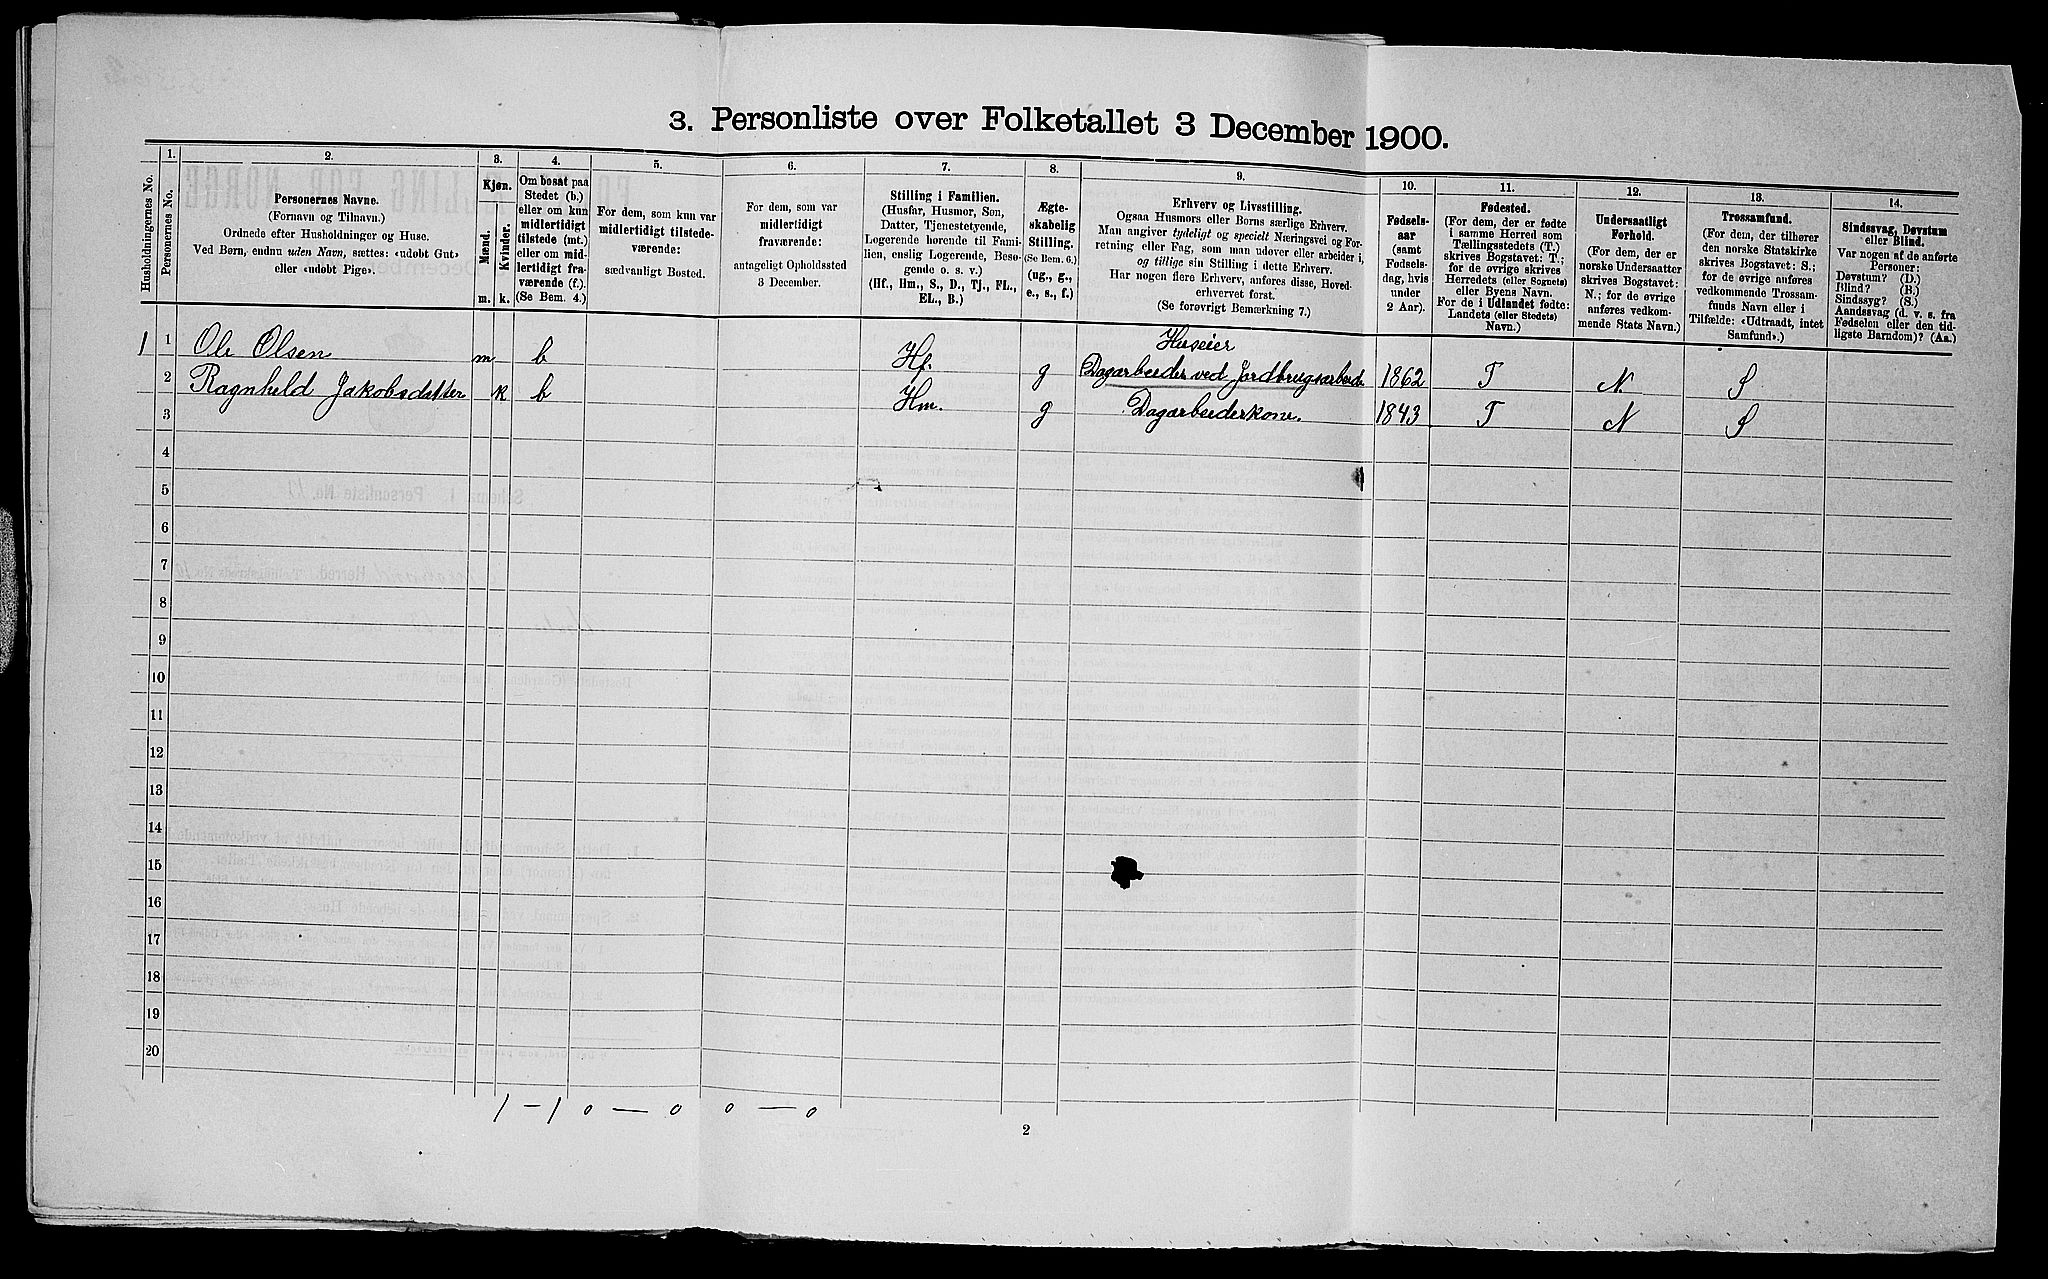 3. Personliste over Folketallet 3 December 1900.
Husholdningernes No.
1.
Personernes No.
2.
Personernes Navne.
(Fornavn og Tilnavn.)
Ordnede efter Husholdninger og Huse.
Ved Børn, endnu uden Navn, sættes: «udøbt Gut»
eller «udøbt Pige».
3.
Kjøn.
Mænd.
Kvinder.
m.
k.
4.
Om bosat paa
Stedet (b.)
eller om kun
midlertidigt
tilstede (mt.)
eller om mid-
lertidigt fra-
værende (f.).
(Se Bem. 4.)
5.
For dem, som kun var
midlertidigt tilstede-
værende:
sædvanligt Bosted.
6.
For dem, som var
midlertidigt
fraværende:
antageligt Opholdssted
3 December.
7.
Stilling i Familien.
(Husfar, Husmor, Søn,
Datter, Tjenestetyende,
Logerende hørende til Fami-
lien, enslig Logerende, Besø-
gende o. s. v.)
(Hf., Hm., S., D., Tj., FL.,
EL., B.)
8.
Ægte-
skabelig
Stilling.
(Se Bem. 6.)
(ug., g.,
e., s., f.)
9.
Erhverv og Livsstilling.
Ogsaa Husmors eller Børns særlige Erhverv.
Man angiver tydeligt og specielt Næringsvei og For-
retning eller Fag, som man udøver eller arbeider i,
og tillige sin Stilling i dette Erhverv.
Har nogen flere Erhverv, anføres disse, Hoved-
erhvervet først.
(Se forøvrigt Bemærkning 7.)
10.
Fødsels-
aar
(samt
Fødsels-
dag, hvis
under
2 Aar).
11.
Fødested.
(For dem, der er fødte
i samme Herred som
Tællingsstedets (T.)
skrives Bogstavet: T.;
for de øvrige skrives
Herredets (eller Sognets)
eller Byens Navn.
For de i Udlandet fødte:
Landets (eller Stedets)
Navn.)
12.
Undersaatligt
Forhold.
(For dem, der er
norske Undersaatter
skrives Bogstavet:
N.; for de øvrige
anføres vedkom-
mende Stats Navn.)
13.
Trossamfund.
(For dem, der tilhører
den norske Statskirke
skrives Bogstavet: S.;
for de øvrige anføres
vedkommende Trossam-
funds Navn eller i
Tilfælde: «Udtraadt, intet
Samfund».)
14.
Sindssvag, Døvstum
eller Blind.
Var nogen af de anførte
Personer:
Døvstum? (D.)
Blind? (B.)
Sindssyg? (S.)
Aandssvag (d. v. s. fra
Fødselen eller den tid-
ligste Barndom)? (Aa.)
1 1 Ole Olsen m b Hf. g Huseier
Dagarbeider ved Jordbrugsarbeide 1862 T N. S
2 Ragnhild Jakobsdatter k b Hm. g Dagarbeiderkone. 1843 T N S
3
4
5
6
7
8
9
10
11
12
13
14
15
16
17
18
19
20
1 – 1 0 — 0 0 — 0
2